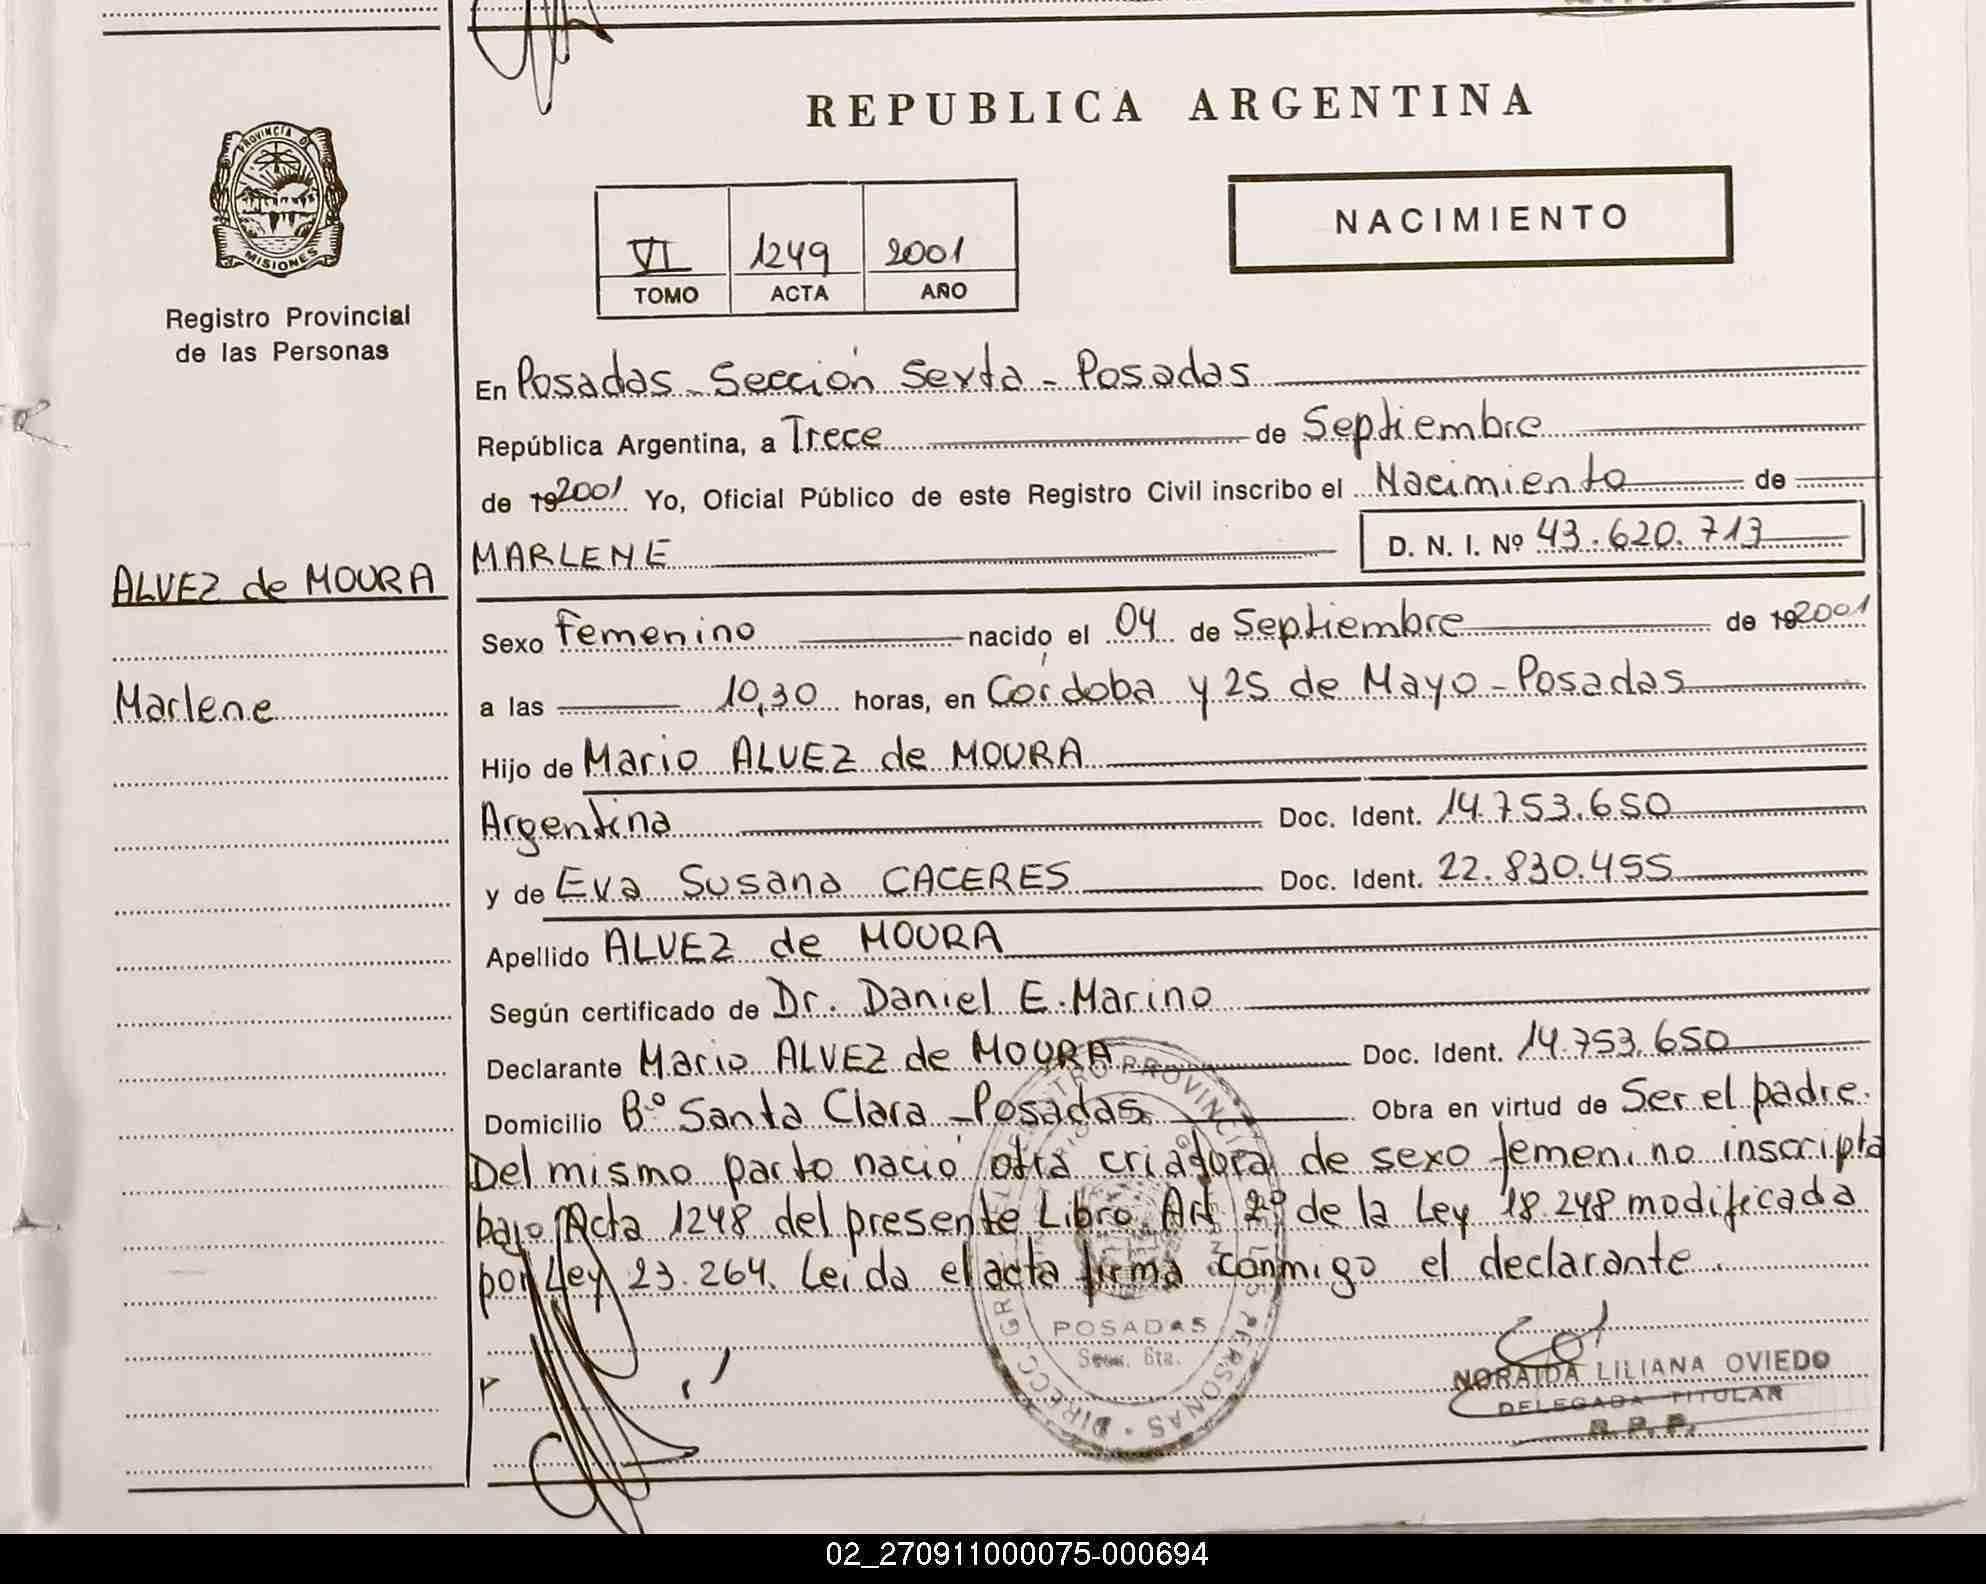 REPUBLICA ARGENTINA
PROVINCIA DE
MISIONES
Registro Provincial
de las Personas
VI 1249 2001
TOMO ACTA AÑO
NACIMIENTO
En Posadas - Sección Sexta - Posadas
República Argentina, a Trece de Septiembre
de 192001 Yo, Oficial Público de este Registro Civil inscribo el Nacimiento de
MARLENE D. N. I. Nº 43.620.713
ALVEZ de MOURA
Marlene
Sexo Femenino nacido el 04 de Septiembre de 192001
a las 10,30 horas, en Córdoba y 25 de Mayo - Posadas
Hijo de Mario ALVEZ de MOURA
Argentina Doc. Ident. 14.753.650
y de Eva Susana CACERES Doc. Ident. 22.830.455
Apellido ALVEZ de MOURA
Según certificado de Dr. Daniel E. Marino
Declarante Mario ALVEZ de MOURA Doc. Ident. 14.753.650
Domicilio Bº Santa Clara - Posadas Obra en virtud de Ser el padre.
Del mismo parto nació otra criadora de sexo femenino inscripta
bajo Acta 1248 del presente Libro. Art 2º de la Ley 18.248 modificada
por Ley 23.264. Leida el acta firma conmigo el declarante.
POSADAS
Secc. 6ta.
NORAIDA LILIANA OVIEDO
DELEGADA TITULAR
R. P. P.
02_270911000075-000694